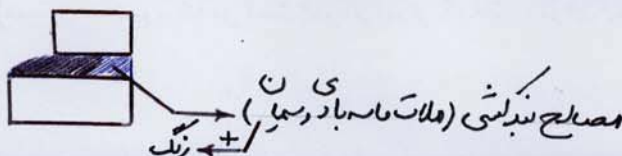 مصالح بندکشی (ملات ماسه بادی و سیمان)
+ رنگ